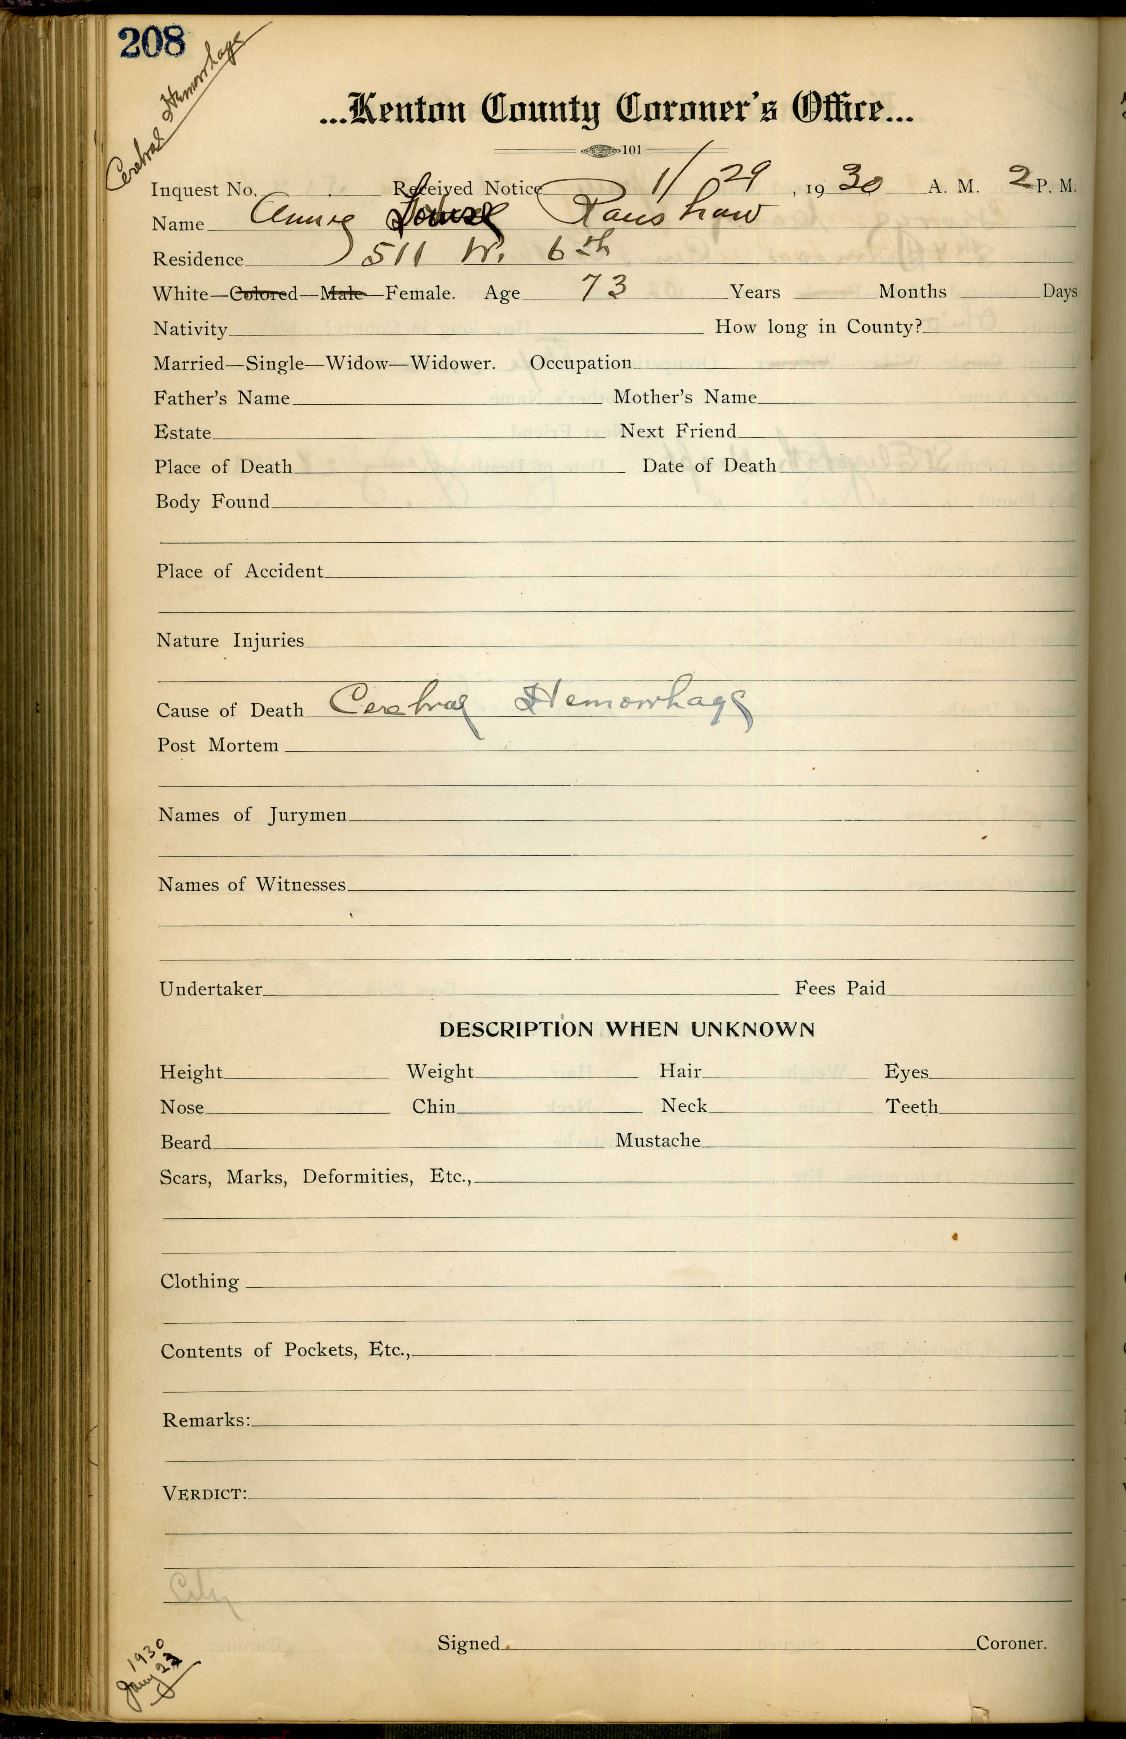 208
Cerebral Hemorrhage
...Kenton County Coroner's Office...
101
Inquest No. Received Notice 1/29, 1930 A. M. 2 P. M.
Name Annie Ranshaw
Residence 511 W. 6th
White—Colored—Male—Female. Age 73 Years Months Days
Nativity How long in County?
Married—Single—Widow—Widower. Occupation
Father's Name Mother's Name
Estate Next Friend
Place of Death Date of Death
Body Found
Place of Accident
Nature Injuries
Cause of Death Cerebral Hemorrhage
Post Mortem
Names of Jurymen
Names of Witnesses
Undertaker Fees Paid
DESCRIPTION WHEN UNKNOWN
Height Weight Hair Eyes
Nose Chin Neck Teeth
Beard Mustache
Scars, Marks, Deformities, Etc.,
Clothing
Contents of Pockets, Etc.,
Remarks:
VERDICT:
City
Signed Coroner.
1930